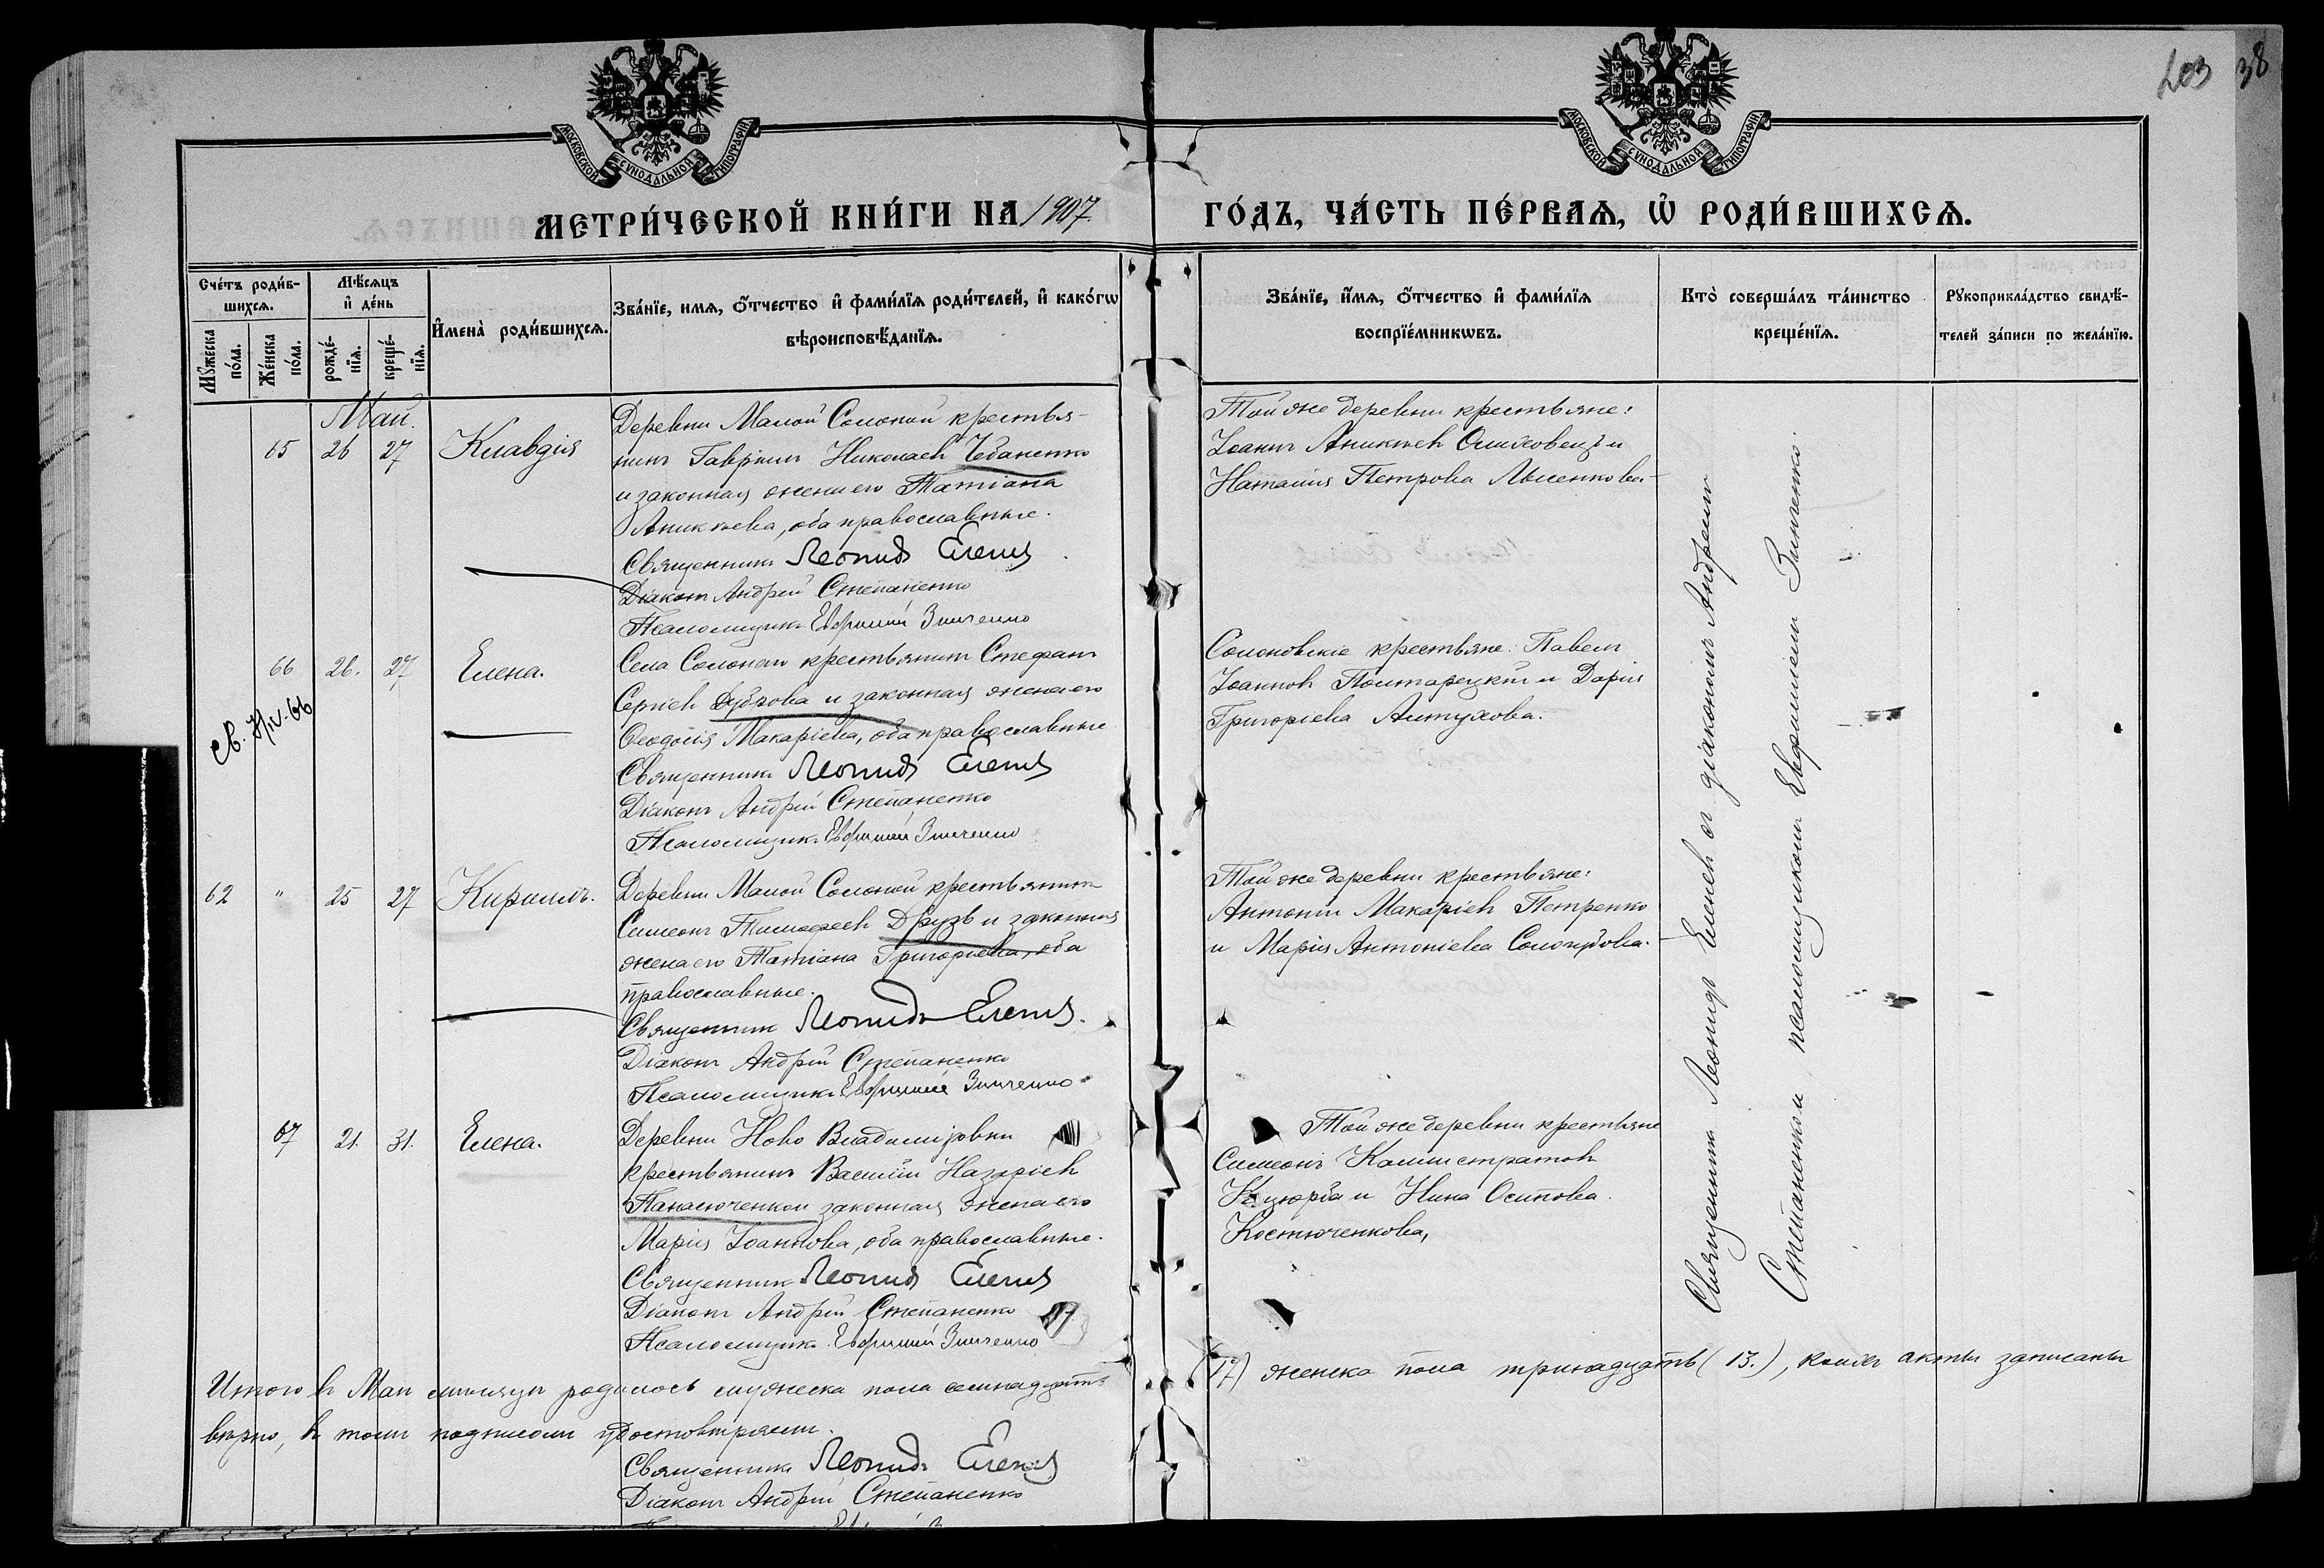 203 38
МОСКОВСКОЙ СѴНОДАЛЬНОЙ ТИПОГРАФІИ
МОСКОВСКОЙ СѴНОДАЛЬНОЙ ТИПОГРАФІИ
МЕТРИ́ЧЕСКОЙ КНИ́ГИ НА 1907 ГО́ДЪ, ЧА́СТЬ ПЕ́РВАѦ, Ѡ҆ РОДИ́ВШИХСѦ.
Сче́тъ роди́в-
шихсѧ.
Мꙋ́жеска по́ла.
Же́нска по́ла.
Мѣ́сѧцъ и҆ де́нь
рожде́-нїѧ.
креще́-нїѧ.
И҆мена̀ роди́вшихсѧ.
Зва́нїе, имѧ, ѻ҆́тчество и҆ фами́лїѧ роди́телей, и҆ како́гѡ
вѣроисповѣ́данїѧ.
Зва́нїе, и҆́мѧ, ѻ҆́тчество и҆ фами́лїѧ
воспрїе́мникѡвъ.
Кто̀ соверша́лъ та́инство
креще́нїѧ.
Рꙋкоприкла́дство свидѣ́-
телей за́писи по жела́нїю.
Май.
65 26 27 Клавдія
Деревни Малой Солоной крестья-
нинъ Гавріилъ Николаевъ Чебаненко
и законная жена его Татіана
Аникіева, оба православные.
Священникъ Леонидъ Еленевъ
Діаконъ Андрей Степаненко
Псаломщикъ Евфимій Зинченко
Той же деревни крестьяне:
Іоаннъ Аникіевъ и
Наталія Петрова Лысенкова
66 26. 27 Елена.
Села Солонаго крестьянинъ Стефанъ
Сергіевъ Дуброва и законная жена его
Ѳеодосія Макаріева, оба православные
Священникъ Леонидъ Еленевъ
Діаконъ Андрей Степаненко
Псаломщикъ Евфимій Зинченко
Солоновскіе крестьяне: Павелъ
Іоанновъ Полтарецкій и Дарія
Григоріева Алтухова.
св. IV-66
62 " 25 27 Кириллъ.
Деревни Малой Солоной крестьянинъ
Симеонъ Тимофеевъ Друзь и законная
жена его Татіана Григоріева, оба
православные.
Священникъ Леонидъ Еленевъ.
Діаконъ Андрей Степаненко
Псаломщикъ Евфимій Зинченко
Той же деревни крестьяне:
Антоній Макаріевъ Петренко
и Марія Антоніева Сологубова.
67 21. 31. Елена.
Деревни Ново Владиміровки
крестьянинъ Василій Назаріевъ
Панасюченко и законная жена его
Марія Іоаннова, оба православные.
Священникъ Леонидъ Еленевъ
Діаконъ Андрей Степаненко
Псаломщикъ Евфимій Зинченко
Той же деревни крестьяне
Симеонъ Каллистратовъ
Коцюрба и Нина Осипова
Костюченкова,
Священникъ Леонидъ Еленевъ съ діакономъ Андреемъ
Степаненко и псаломщикомъ Евфиміемъ Зинченко.
Итого въ Маѣ мѣсяцѣ родилось мужеска пола семнадцать (17) женска пола тринадцать (13.), коихъ акты записаны
вѣрно, въ томъ подписомъ удостовѣряемъ.
Священникъ Леонидъ Еленевъ
Діаконъ Андрей Степаненко